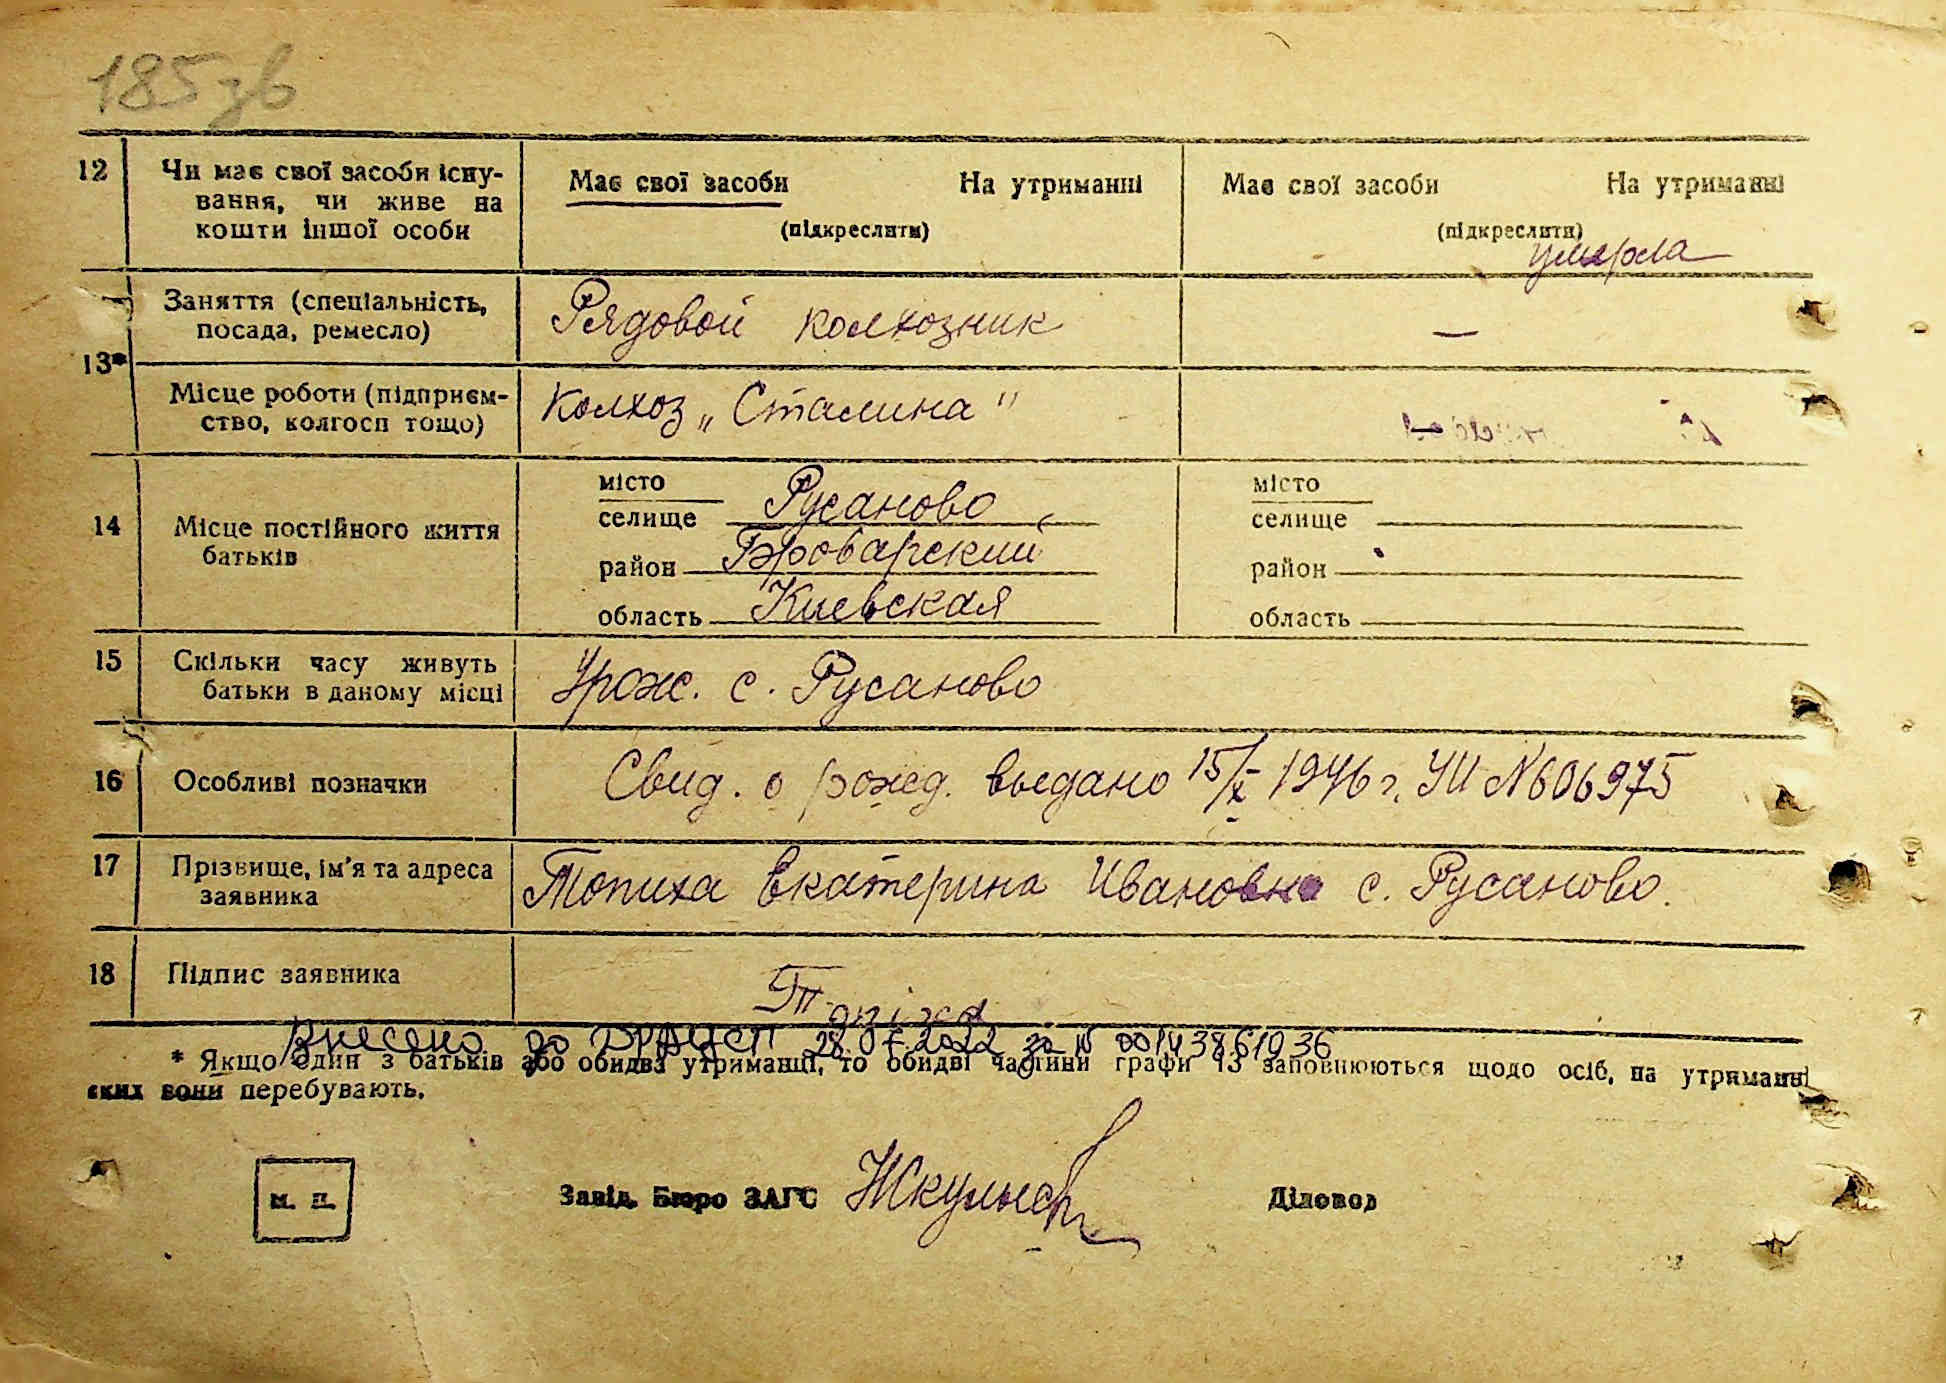 185зв
12 Чи має свої засоби існу-
вання, чи живе на
кошти іншої особи
Має свої засоби На утриманні
(підкреслити)
Має свої засоби На утриманні
(підкреслити)
умерла
13*
Заняття (спеціальність,
посада, ремесло)
Рядовой колхозник
—
Місце роботи (підприєм-
ство, колгосп тощо)
Колхоз „Сталина"
14 Місце постійного життя
батьків
місто
селище Русаново
район Броварский
область Киевская
місто
селище
район
область
15 Скільки часу живуть
батьки в даному місці
Урож. с. Русаново
16 Особливі позначки
Свид. о рожд. выдано 15/X 1946 г. УШ №606975
17 Прізвище, ім'я та адреса
заявника
Топиха Екатерина Ивановна с. Русаново.
18 Підпис заявника
Внесено до ДРАЦСГ 28.07.2022 за № 00143861936
* Якщо один з батьків або обидва утриманці, то обидві частини графи 13 заповнюються щодо осіб, на утриманні
яких вони перебувають.
м. п.
Завід. Бюро ЗАГС
Діловод